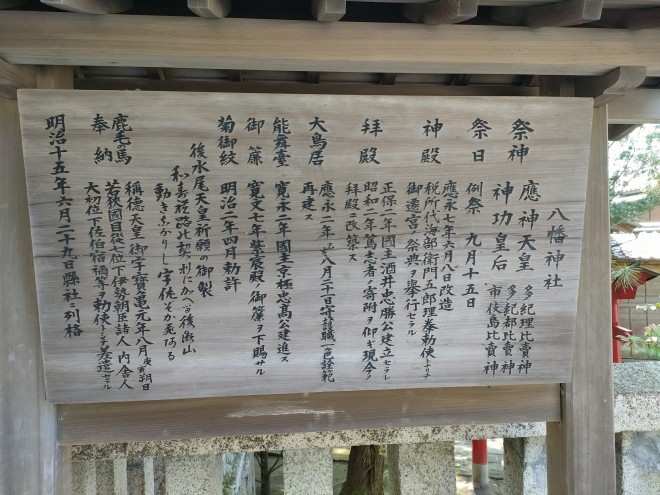 八幡神社
祭神 應神天皇 多紀理比賣神
神功皇后 多紀都比賣神
市伎島比賣神
祭日 例祭 九月十五日
神殿 應永七年六月八日改造
税所代海部衛門五郎理奉勅使トナリ
御遷宮ノ祭典ヲ舉行セラル
拝殿 正保二年國主酒井忠勝公建立セラレ
昭和二年篤志者ノ寄附ヲ仰ギ現今ノ
拝殿ニ改築ス
大鳥居 應永二年 八月二十一日守護職一色詮範
再建ス
能舞臺 寛永二年國主京極忠高公建進ス
御簾 寛文七年紫宸殿ノ御簾ヲ下賜サル
菊御紋 明治二年四月勅許
後水尾天皇祈願の御製
後瀬山
鹿毛の馬 稱徳天皇御宇寶亀元年八月庚寅朔日
奉納 若狭國目從七位下伊勢朝臣諸人 内舎人
大初位下佐伯宿禰等ヲ勅使トシテ差遣セラル
明治十五年六月二十九日縣社ニ列格